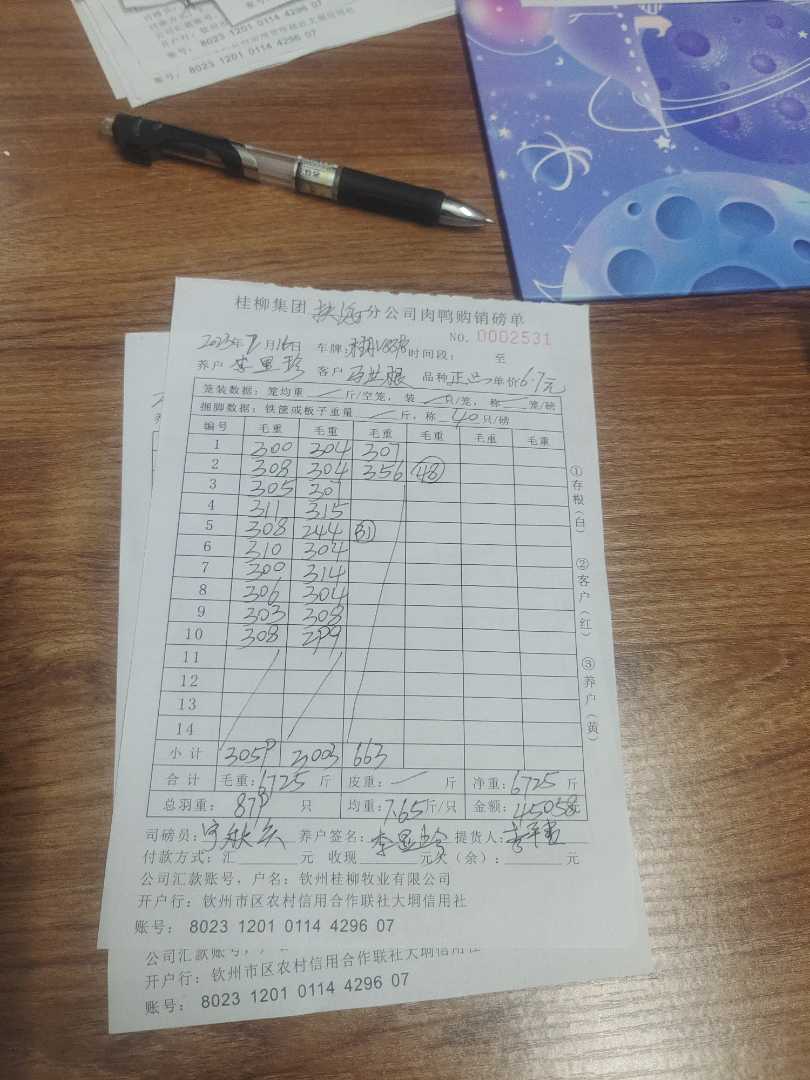 账号: 8023 1201 0114 4296 07
账号: 8023 1201 0114 4296 07
桂柳集团 分公司肉鸭购销磅单
NO. 0002531
2023年 月16日 车牌: 时间段: 至
养户 李 珍 客户 品种 正品 单价 6.7元
笼装数据: 笼均重 斤/空笼, 装 只/笼, 称 笼/磅
捆脚数据: 铁筐或板子重量 斤, 称 40 只/磅
编号 毛重 毛重 毛重 毛重 毛重 毛重
1 300 304 307
2 308 304 356 48
3 305 307
4 311 315
5 308 244 31
6 310 304
7 300 314
8 306 304
9 303 308
10 308 299
11
12
13
14
小计 3059 3003 663
合计 毛重: 6725 斤 皮重: 斤 净重: 6725 斤
总羽重: 879 只 均重: 7.65 斤/只 金额: 45058元
司磅员: 养户签名: 提货人:
付款方式: 汇 元 收现 元欠(余): 元
公司汇款账号, 户名: 钦州桂柳牧业有限公司
开户行: 钦州市区农村信用合作联社大垌信用社
账号: 8023 1201 0114 4296 07
①存根(白)
②客户(红)
③养户(黄)
开户行: 钦州市区农村信用合作联社大垌信用社
账号: 8023 1201 0114 4296 07